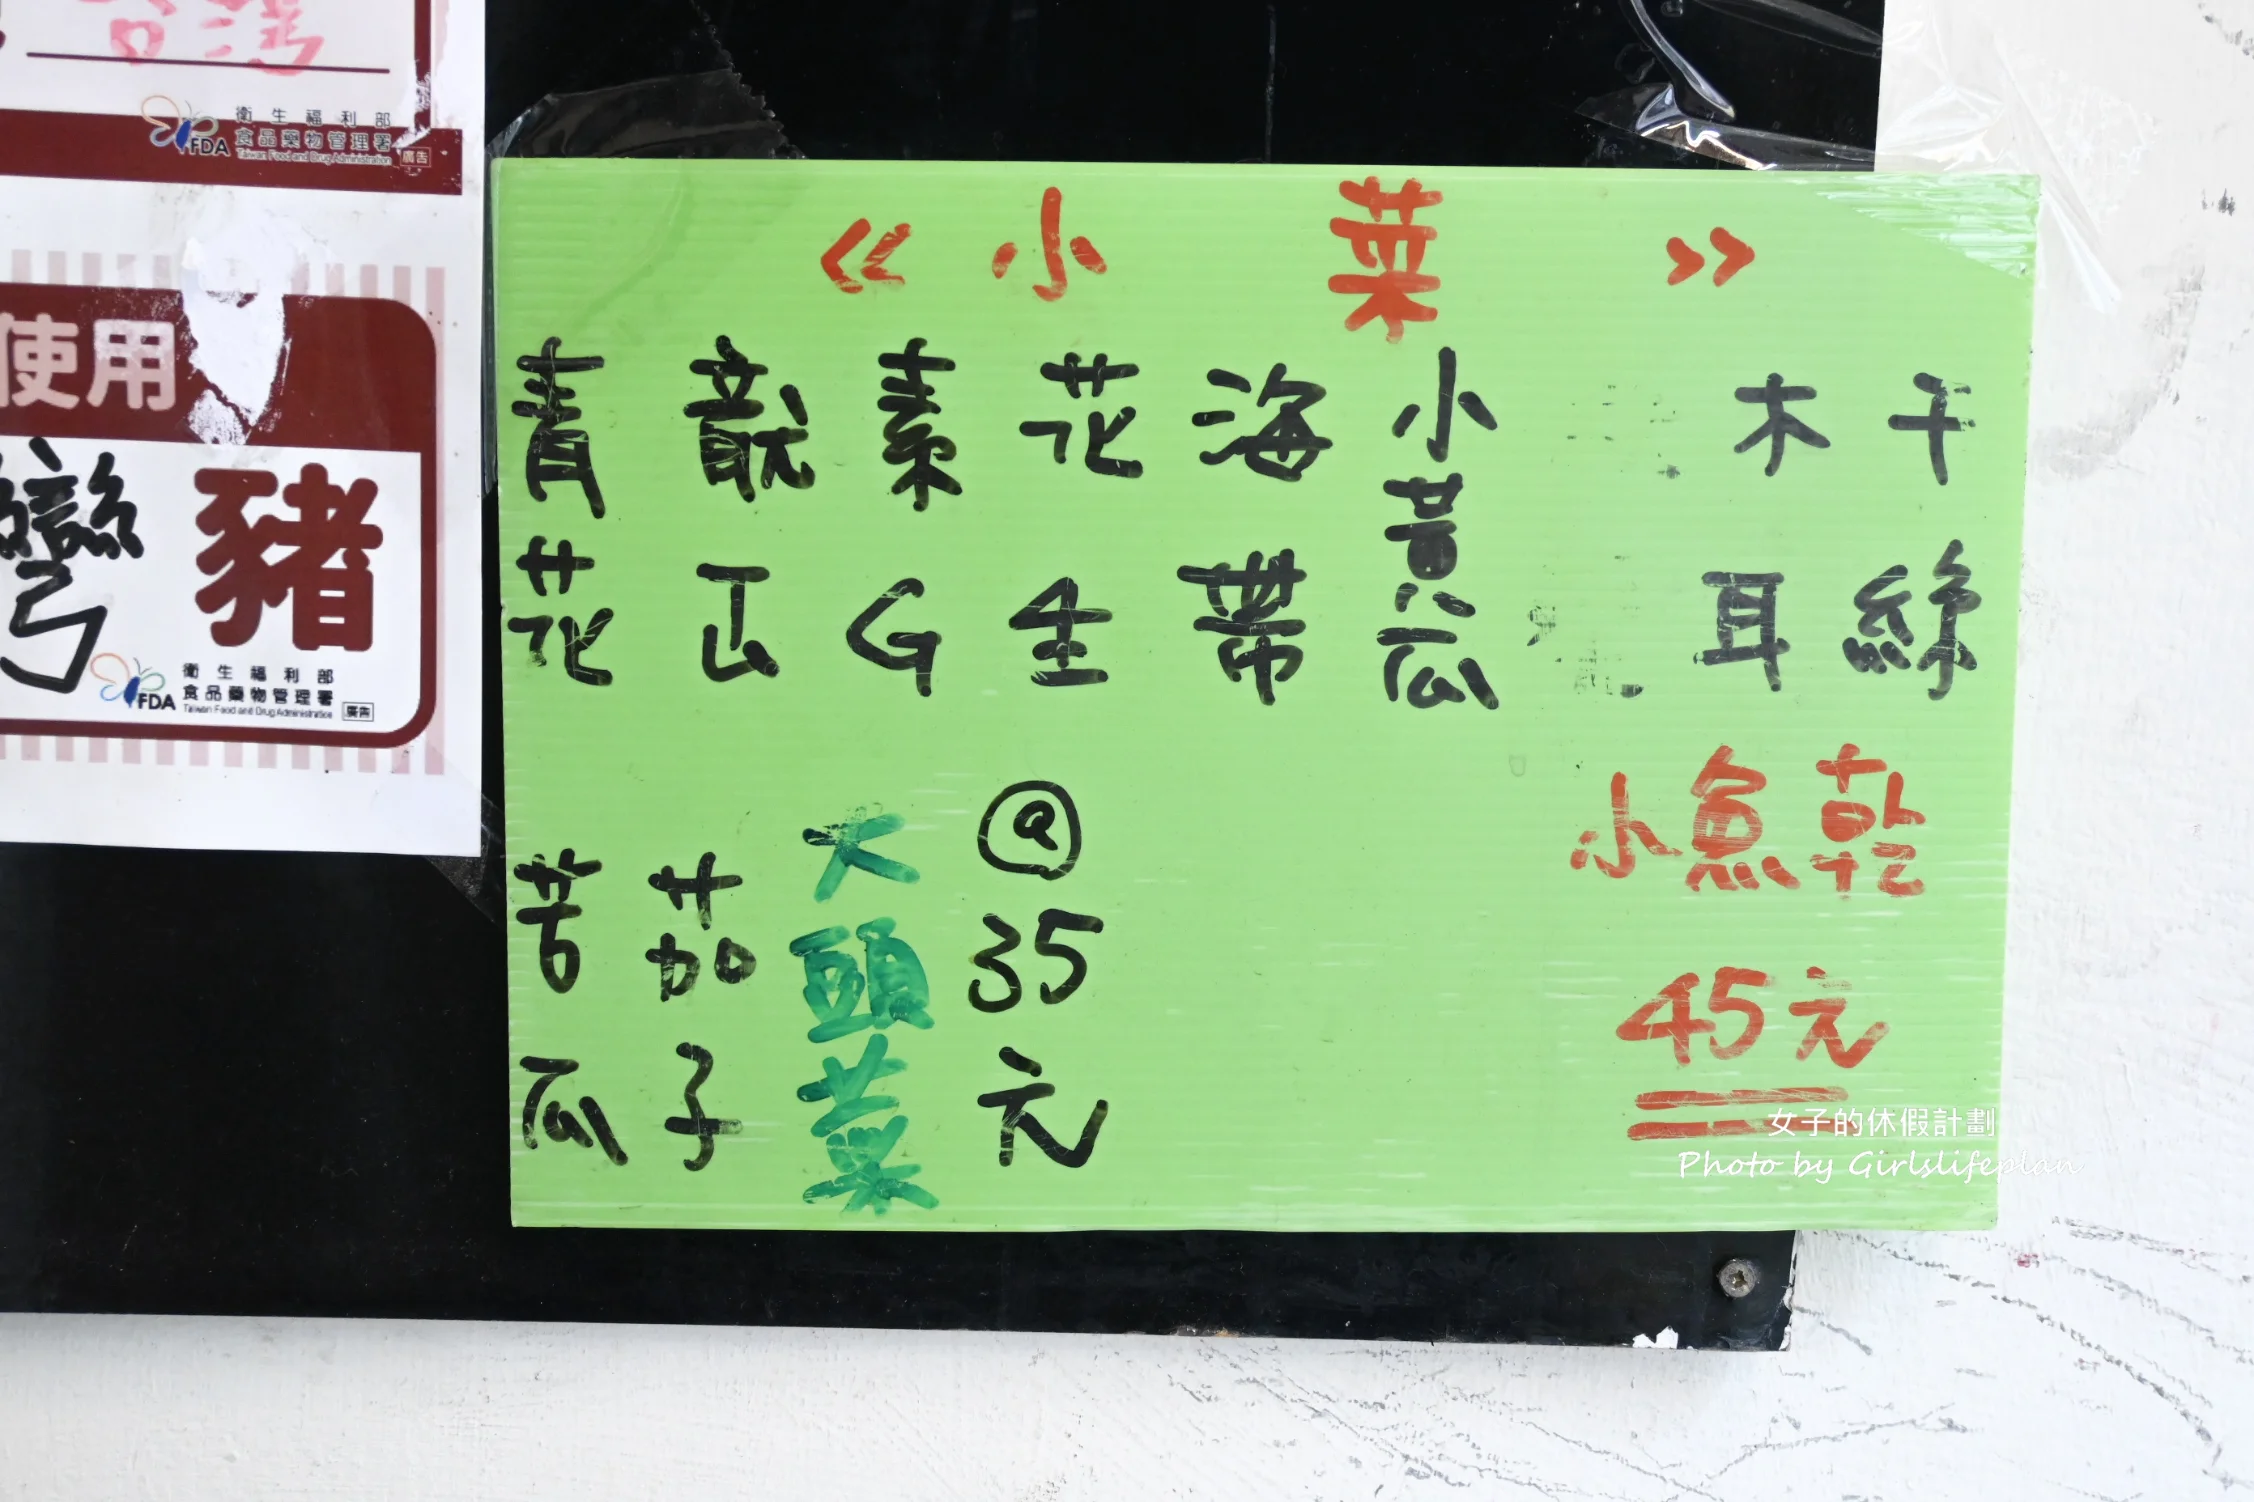 台灣
衛生福利部
食品藥物管理署
FDA
Taiwan Food and Drug Administration
廣告
使用
灣 豬
衛生福利部
食品藥物管理署
FDA
Taiwan Food and Drug Administration
廣告
《小菜》
干絲
木耳
小黃瓜
海帶
花生
素G
龍豆
青花
小魚乾
45元
@35元
大頭菜
茄子
苦瓜
女子的休假計劃
Photo by Girlslifeplan